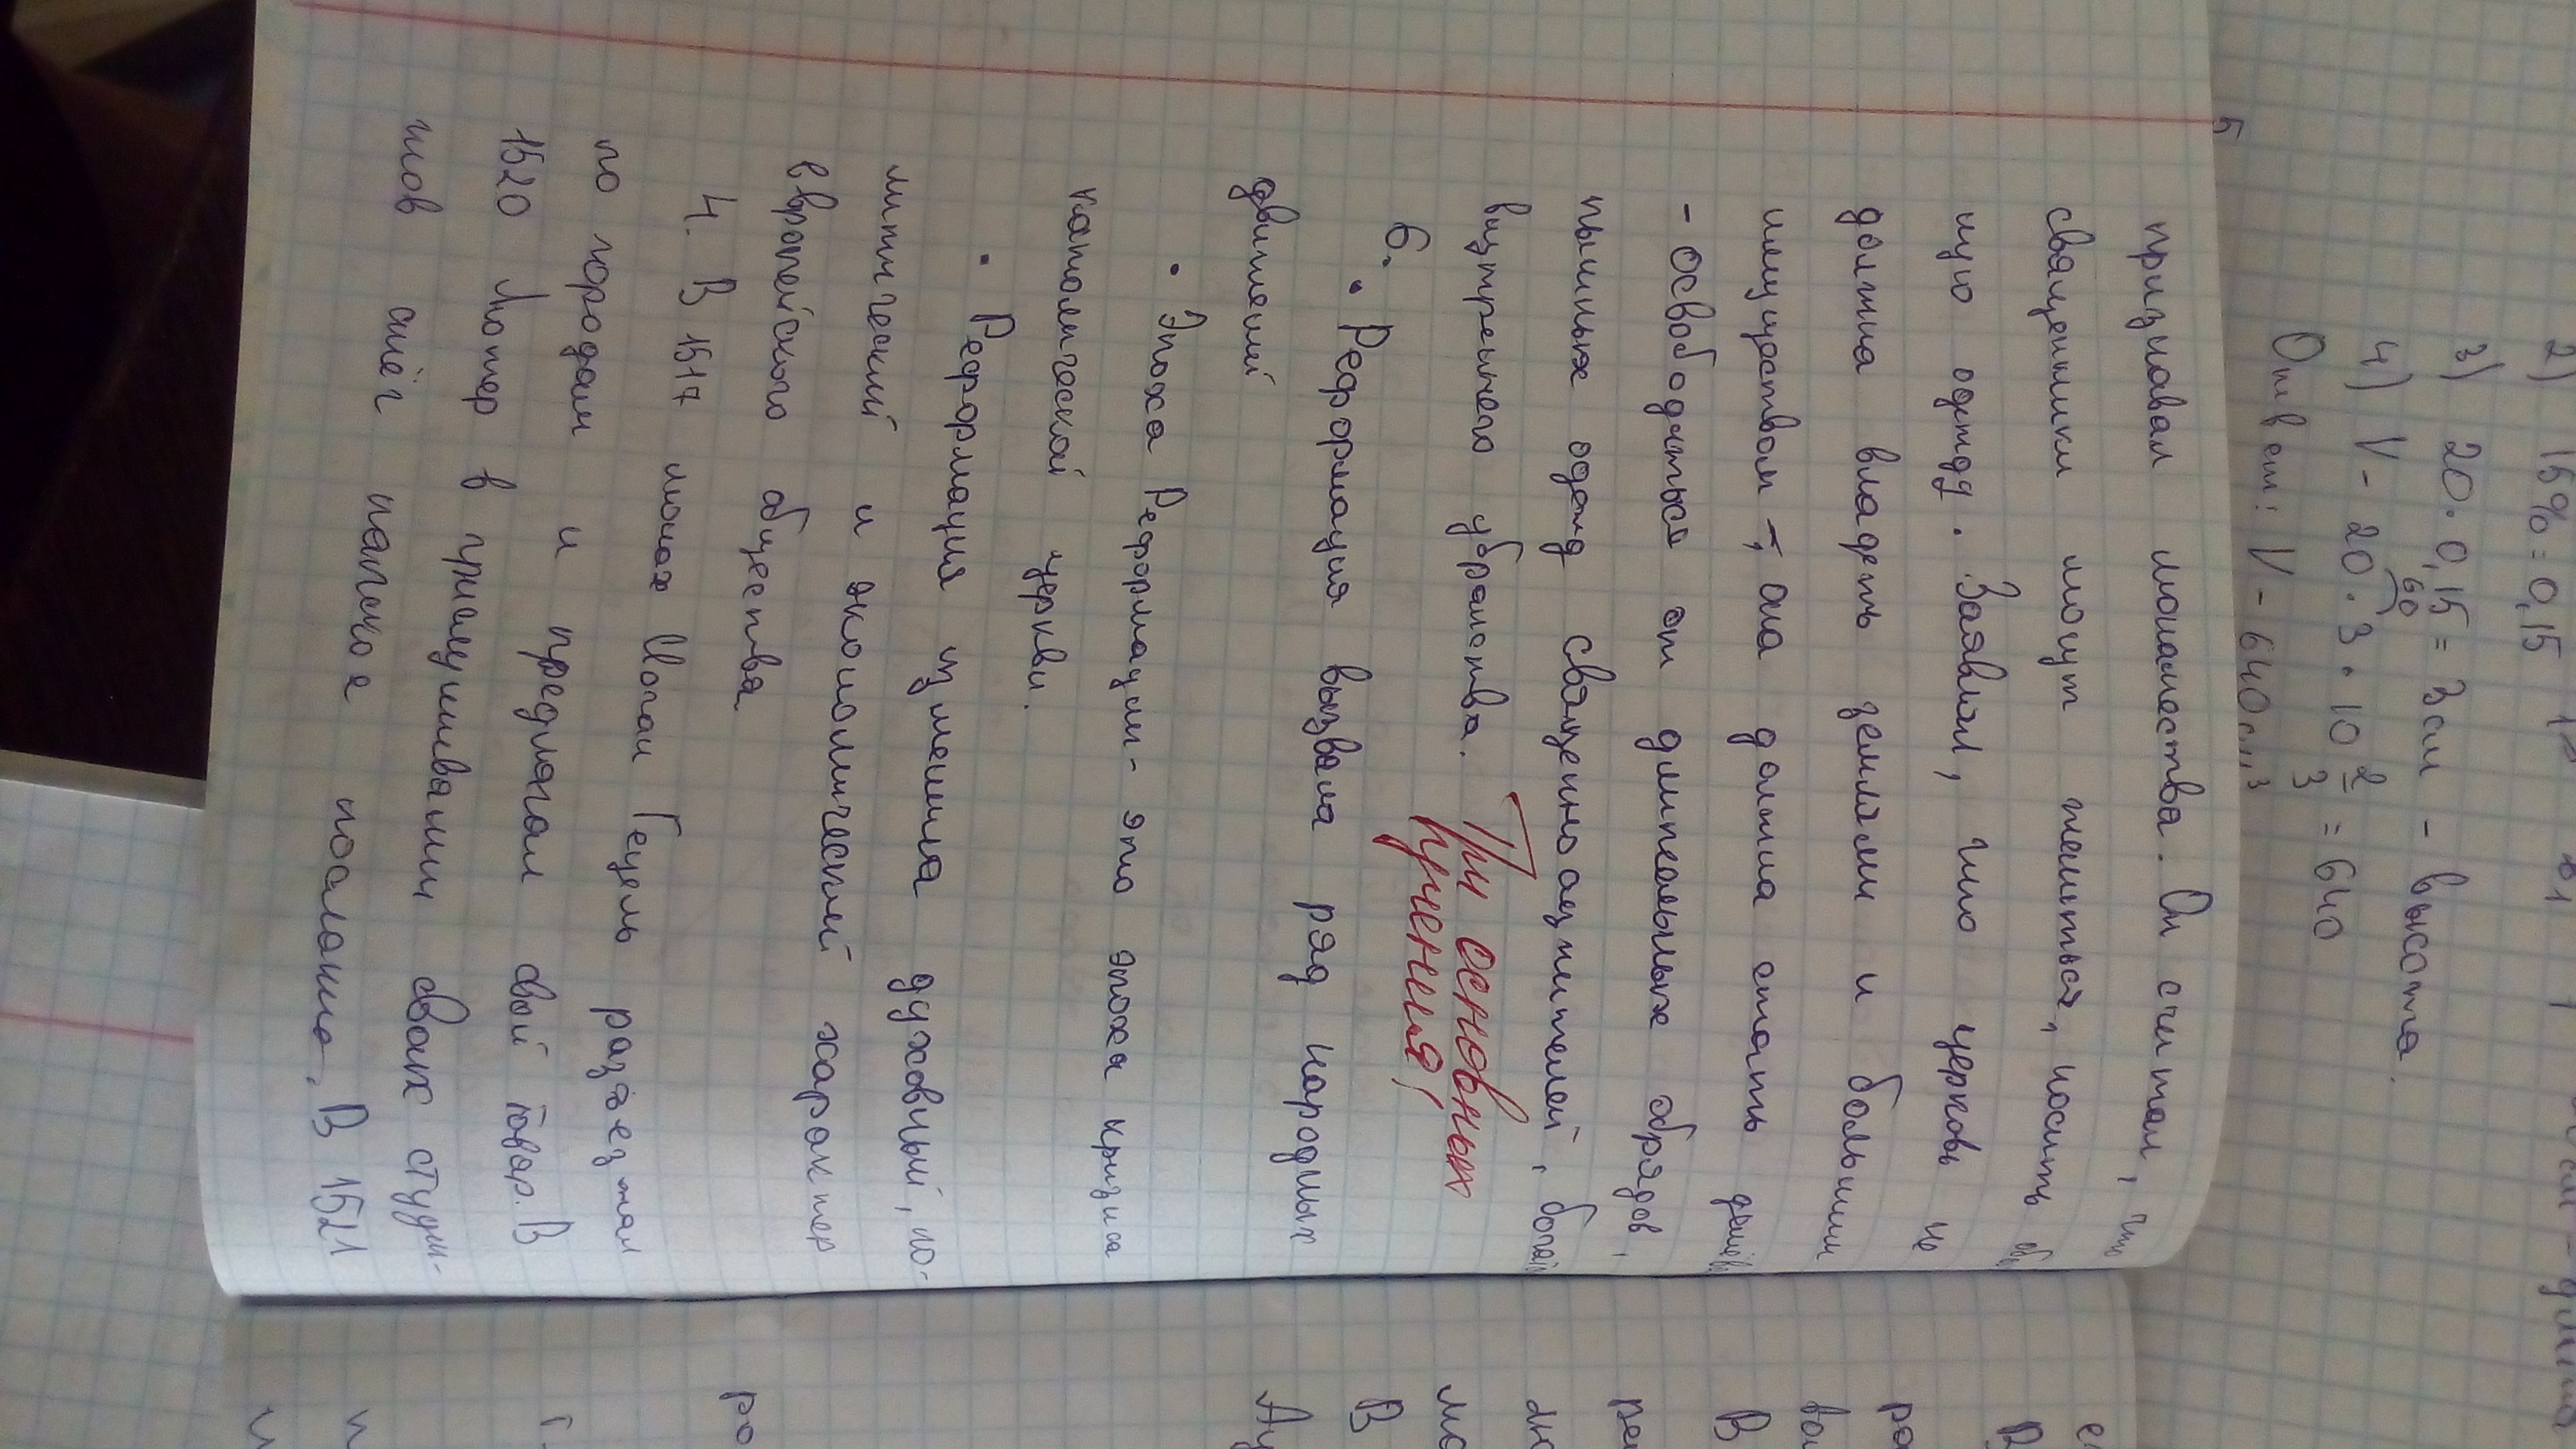 2) 15% = 0,15
3) 20 · 0,15 = 3 см - высота.
4) V - 20 · 3 · 10 2/3 = 640
60
Ответ: V - 640 см³
5
признавал монашества. Он считал, что
священники могут жениться, носить
ную одежд. Заявлял, что церковь не
должна владеть землями и большим
имуществом -, она должна стать
- освободиться от длительных обрядов,
пышных одежд священнослужителей,
внутреннего убранства.
Три основных
учения!
6.
· Реформация вызвала ряд народных
движений
· Эпоха Реформации - это эпоха кризиса
католической церкви.
· Реформация изменила духовный, по-
литический и экономический характер
европейского общества.
4. В 1517 монах Иоган Гецель разъезжал
по городам и предлагал свой товар. В
1520 Лютер в присутствии своих студен-
тов сжёг папское послание. В 1521
ра
Ау
В
мо
В
ра
В